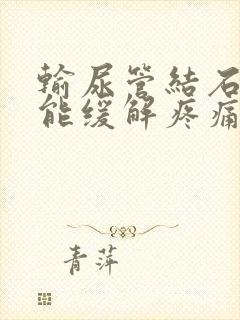 输尿管結石
能缓解疼痛
青萍